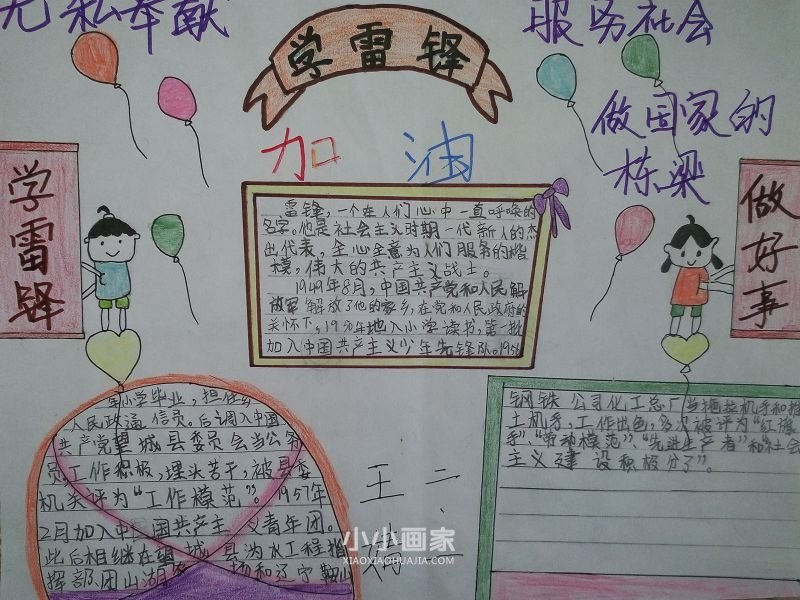 无私奉献
服务社会
学雷铎
加油
做国家的
栋梁
学雷铎
做好事
雷锋，一个在人们心中一直呼唤的
名字。他是社会主义时期一代新人的杰
出代表，全心全意为人们服务的楷
模，伟大的共产主义战士。
1949年8月，中国共产党和人民解
放军解放了他的家乡，在党和人民政府的
关怀下，1950年地入小学读书，第一批
加入中国共产主义少年先锋队。1956
年小学毕业，担任乡
人民政通信员。后调入中国
共产党望城县委员会当公务
员，工作积极，埋头苦干，被县委
机关评为“工作模范”。1957年
2月加入中国国共产主义青年团。
此后相继在望城县沩水工程指
挥部、团山湖农场和辽宁鞍山
钢铁公司化工总厂当推拉机手和推
土机手，工作出色，多次被评为“红旗
手”、“劳动模范”、“先进生产者”和“社会
主义建设积极分子”。
王
二·二
小小画家
XIAOXIAOHUAJIA.COM